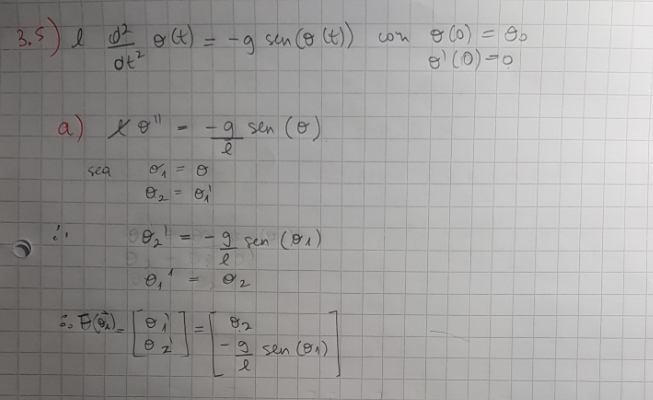 3.5) l d²/dt² θ(t) = -g sen(θ(t)) con θ(0) = θ₀
θ'(0)=0
a) l θ'' = -g/l sen(θ)
sea θ₁ = θ
θ₂ = θ₁'
∴ θ₂' = -g/l sen(θ₁)
θ₁' = θ₂
∴ [θ₁' θ₂'] = [θ₂ -g/l sen(θ₁)]